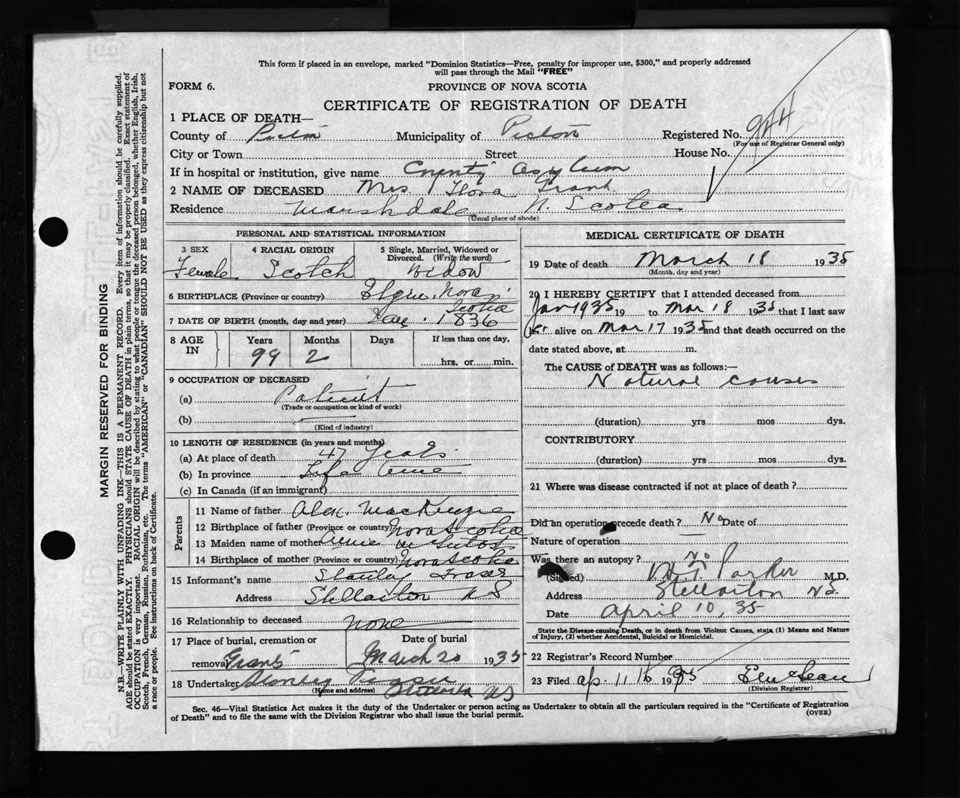 This form if placed in an envelope, marked "Dominion Statistics—Free, penalty for improper use, $300," and properly addressed
will pass through the Mail "FREE"
FORM 6.
PROVINCE OF NOVA SCOTIA
CERTIFICATE OF REGISTRATION OF DEATH
1 PLACE OF DEATH—
County of Pictou Municipality of Pictou Registered No. 944
(For use of Registrar General only)
City or Town Street House No.
If in hospital or institution, give name County Asylum
2 NAME OF DECEASED Mrs Flora Grant
Residence Marshdale N. Scotia
(Usual place of abode)
PERSONAL AND STATISTICAL INFORMATION
3 SEX 4 RACIAL ORIGIN 5 Single, Married, Widowed or Divorced. (Write the word)
Female Scotch Widow
6 BIRTHPLACE (Province or country) Elgin, Nova Scotia
7 DATE OF BIRTH (month, day and year) 1836
8 AGE IN Years Months Days If less than one day,
99 2 hrs. or min.
9 OCCUPATION OF DECEASED
(a) Patient
(Trade or occupation or kind of work)
(b)
(Kind of industry)
10 LENGTH OF RESIDENCE (in years and months)
(a) At place of death 47 Years
(b) In province Life time
(c) In Canada (if an immigrant)
Parents
11 Name of father Alex. MacKenzie
12 Birthplace of father (Province or country) Nova Scotia
13 Maiden name of mother
14 Birthplace of mother (Province or country) Nova Scotia
15 Informant's name Stanley Fraser
Address Stellarton N S
16 Relationship to deceased none
17 Place of burial, cremation or removal Grants Date of burial March 20 1935
18 Undertaker Stanley Fraser Stellarton N S
(Name and address)
MEDICAL CERTIFICATE OF DEATH
19 Date of death March 18 1935
(Month, day and year)
20 I HEREBY CERTIFY that I attended deceased from
Jan 1935 19 to Mar 18 1935 that I last saw
her alive on Mar 17 1935 and that death occurred on
date stated above, at m.
The CAUSE of DEATH was as follows:—
Natural causes
(duration) yrs mos dys.
CONTRIBUTORY
(duration) yrs mos dys.
21 Where was disease contracted if not at place of death?
Did an operation precede death? No Date of
Nature of operation
Was there an autopsy? No
(Signed) Parker M.D.
Address Stellarton NS.
Date April 10, 35
State the Disease causing Death, or in death from Violent Causes, state (1) Means and Nature
of Injury, (2) whether Accidental, Suicidal or Homicidal.
22 Registrar's Record Number
23 Filed Ap. 11 1935
(Division Registrar)
Sec. 46—Vital Statistics Act makes it the duty of the Undertaker or person acting as Undertaker to obtain all the particulars required in the "Certificate of Registration
of Death" and to file the same with the Division Registrar who shall issue the burial permit.
(OVER)
MARGIN RESERVED FOR BINDING
N.B.—WRITE PLAINLY WITH UNFADING INK—THIS IS A PERMANENT RECORD. Every item of information should be carefully supplied.
AGE should be stated EXACTLY. PHYSICIANS should STATE CAUSE OF DEATH in plain terms, so that it may be properly classified. Exact statement of
OCCUPATION is very important. RACIAL ORIGIN will be described by stating to what people or tongue the deceased person belonged, whether English, Irish,
Scotch, French, German, Russian, Ruthenian, etc. The terms "AMERICAN" or "CANADIAN" SHOULD NOT BE USED as they express citizenship but not
a race or people. See instructions on back of Certificate.